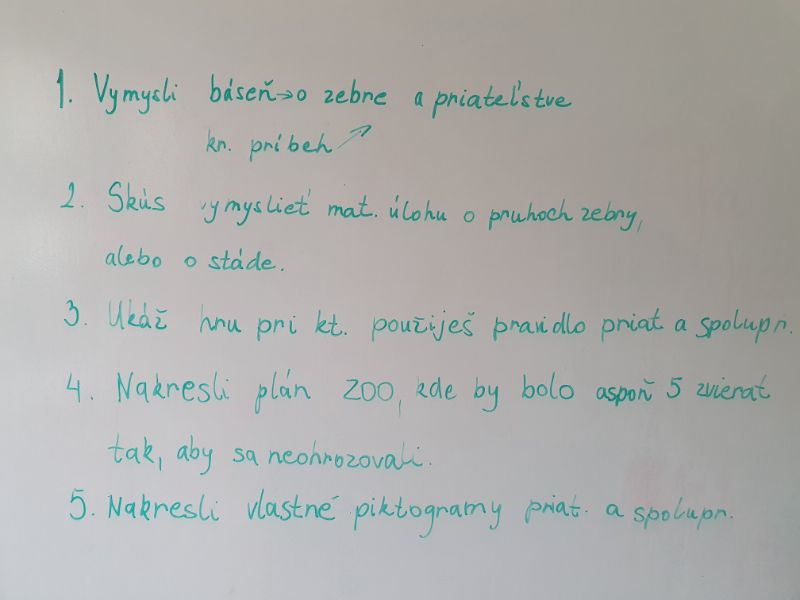 1. Vymysli báseň→o zebre a priateľstve
kr. príbeh ↗
2. Skús vymyslieť mat. úlohu o pruhoch zebry,
alebo o stáde.
3. Ukáž hru pri kt. použiješ pravidlo priat a spolupr.
4. Nakresli plán ZOO, kde by bolo aspoň 5 zvierat
tak, aby sa neohrozovali.
5. Nakresli vlastné piktogramy priat. a spolupr.